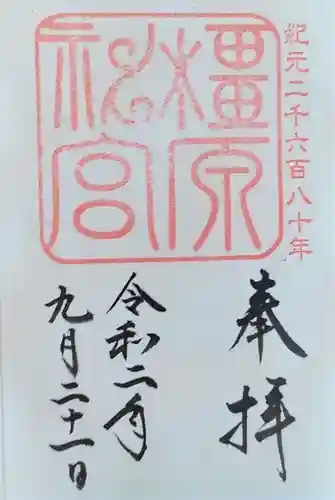 紀元二千六百八十年
橿原神宮
奉拝
令和二年
九月二十一日